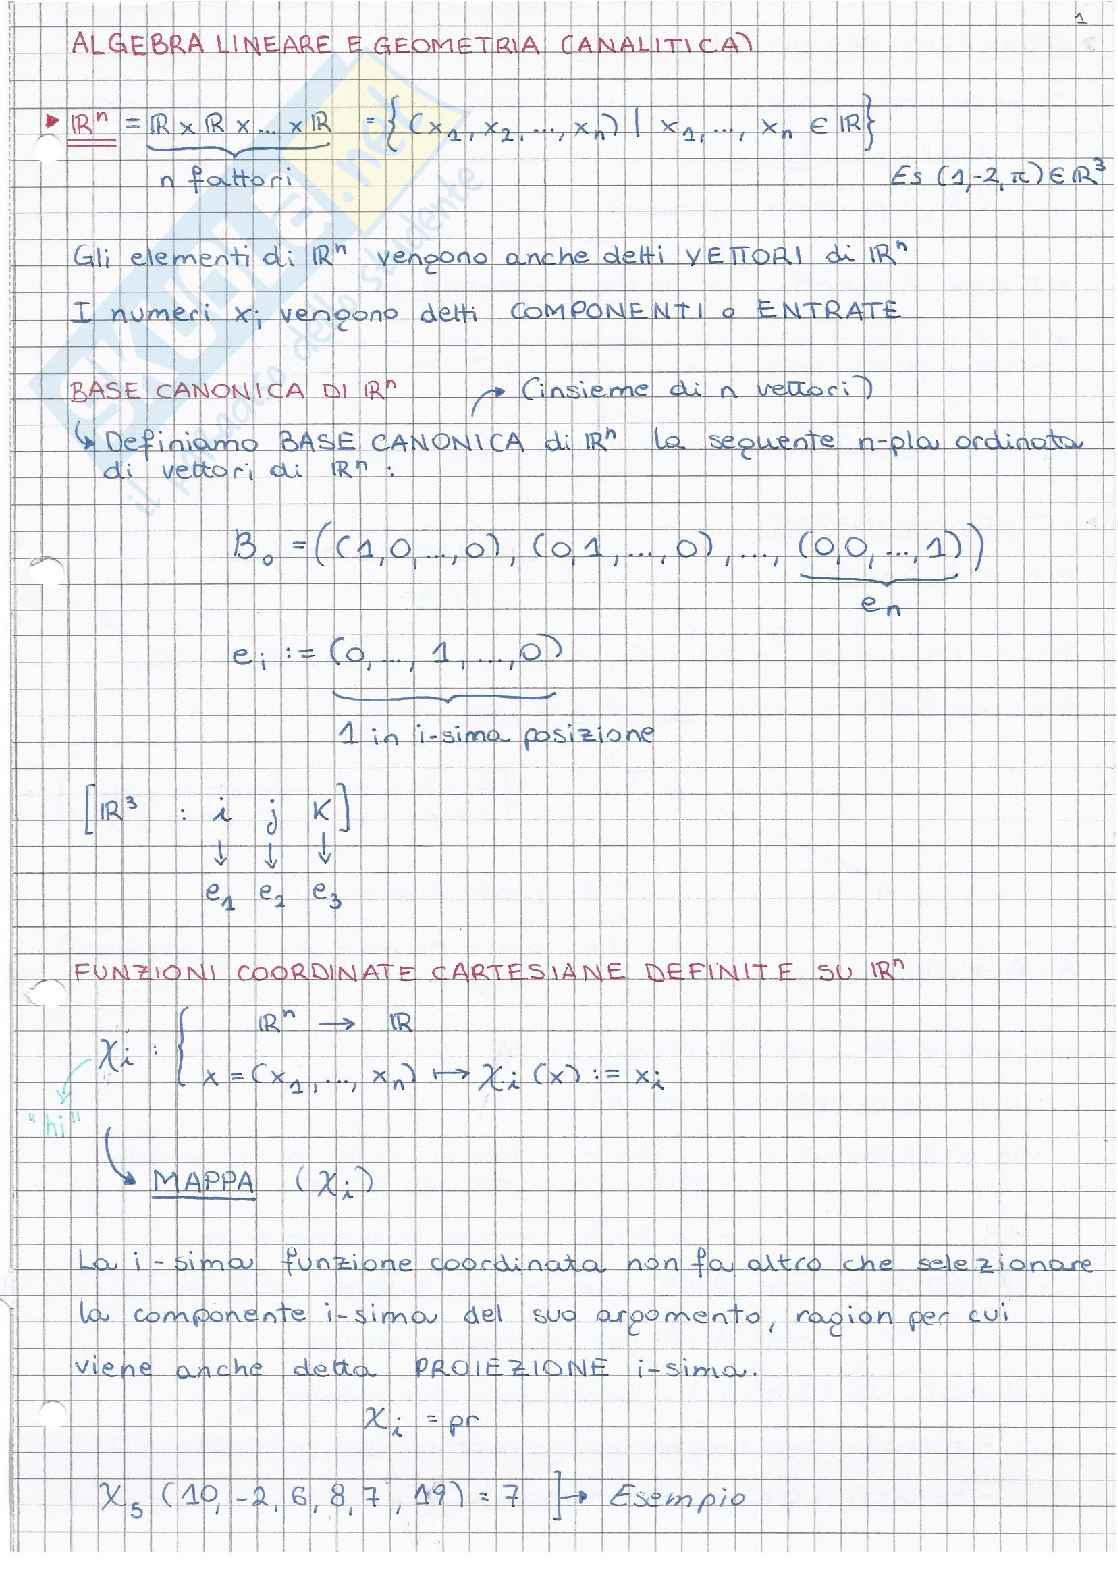 1
ALGEBRA LINEARE E GEOMETRIA (ANALITICA)
▸ ℝⁿ = ℝ x ℝ x ... x ℝ = {(x₁, x₂, ..., xₙ) | x₁, ..., xₙ ∈ ℝ}
n fattori
Es (1,-2,π) ∈ ℝ³
Gli elementi di ℝⁿ vengono anche detti VETTORI di ℝⁿ
I numeri xᵢ vengono detti COMPONENTI o ENTRATE
BASE CANONICA DI ℝⁿ
→ (insieme di n vettori)
↳ Definiamo BASE CANONICA di ℝⁿ la seguente n-pla ordinata
di vettori di ℝⁿ :
B₀ = ((1,0,...,0), (0,1,...,0), ..., (0,0,...,1))
eₙ
eᵢ := (0,..., 1,...,0)
1 in i-sima posizione
[ℝ³ : i j K]
↓ ↓ ↓
e₁ e₂ e₃
FUNZIONI COORDINATE CARTESIANE DEFINITE SU ℝⁿ
χᵢ : { ℝⁿ → ℝ
x = (x₁, ..., xₙ) ↦ χᵢ (x) := xᵢ
"hi"
↳ MAPPA (χᵢ)
La i-sima funzione coordinata non fa altro che selezionare
la componente i-sima del suo argomento, ragion per cui
viene anche detta PROIEZIONE i-sima.
χᵢ = pr
χ₅ (10, -2, 6, 8, 7, 19) = 7 ]→ Esempio
SKUOLA.net
il paradiso dello studente